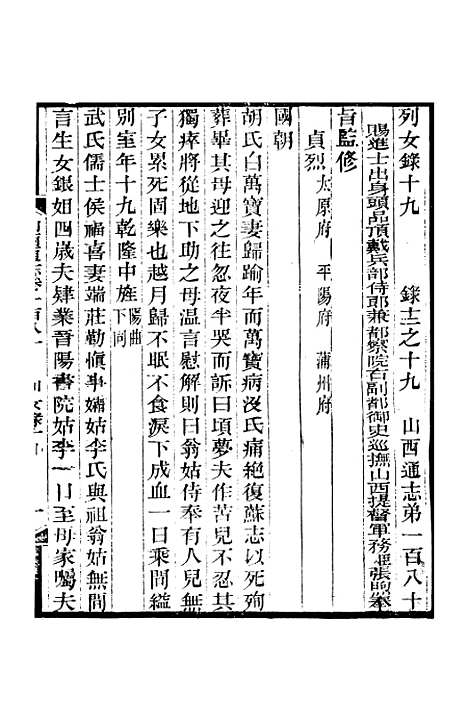 列女錄十九　錄士之十九　山西通志第一百八十
賜進士出身頭品頂戴兵部侍郎兼都察院右副都御史巡撫山西提督軍務臣張煦奉
旨監修
貞烈 太原府　平陽府　蒲州府
國朝
胡氏白萬寶妻歸踰年而萬寶病沒氏痛絕復蘇志以死殉
葬畢其母迎之往忽夜半哭而訴曰頃夢夫作苦兒不忍其
獨瘁將從地下助之母溫言慰解則曰翁姑侍奉有人兒無
子女累死固樂也越月歸不眠不食淚下成血一日乘間縊
別室年十九乾隆中旌 陽曲下同
武氏儒士侯福喜妻端莊勤慎事孀姑李氏與祖翁姑無間
言生女銀姐四歲夫肄業晉陽書院姑李一日至母家囑夫